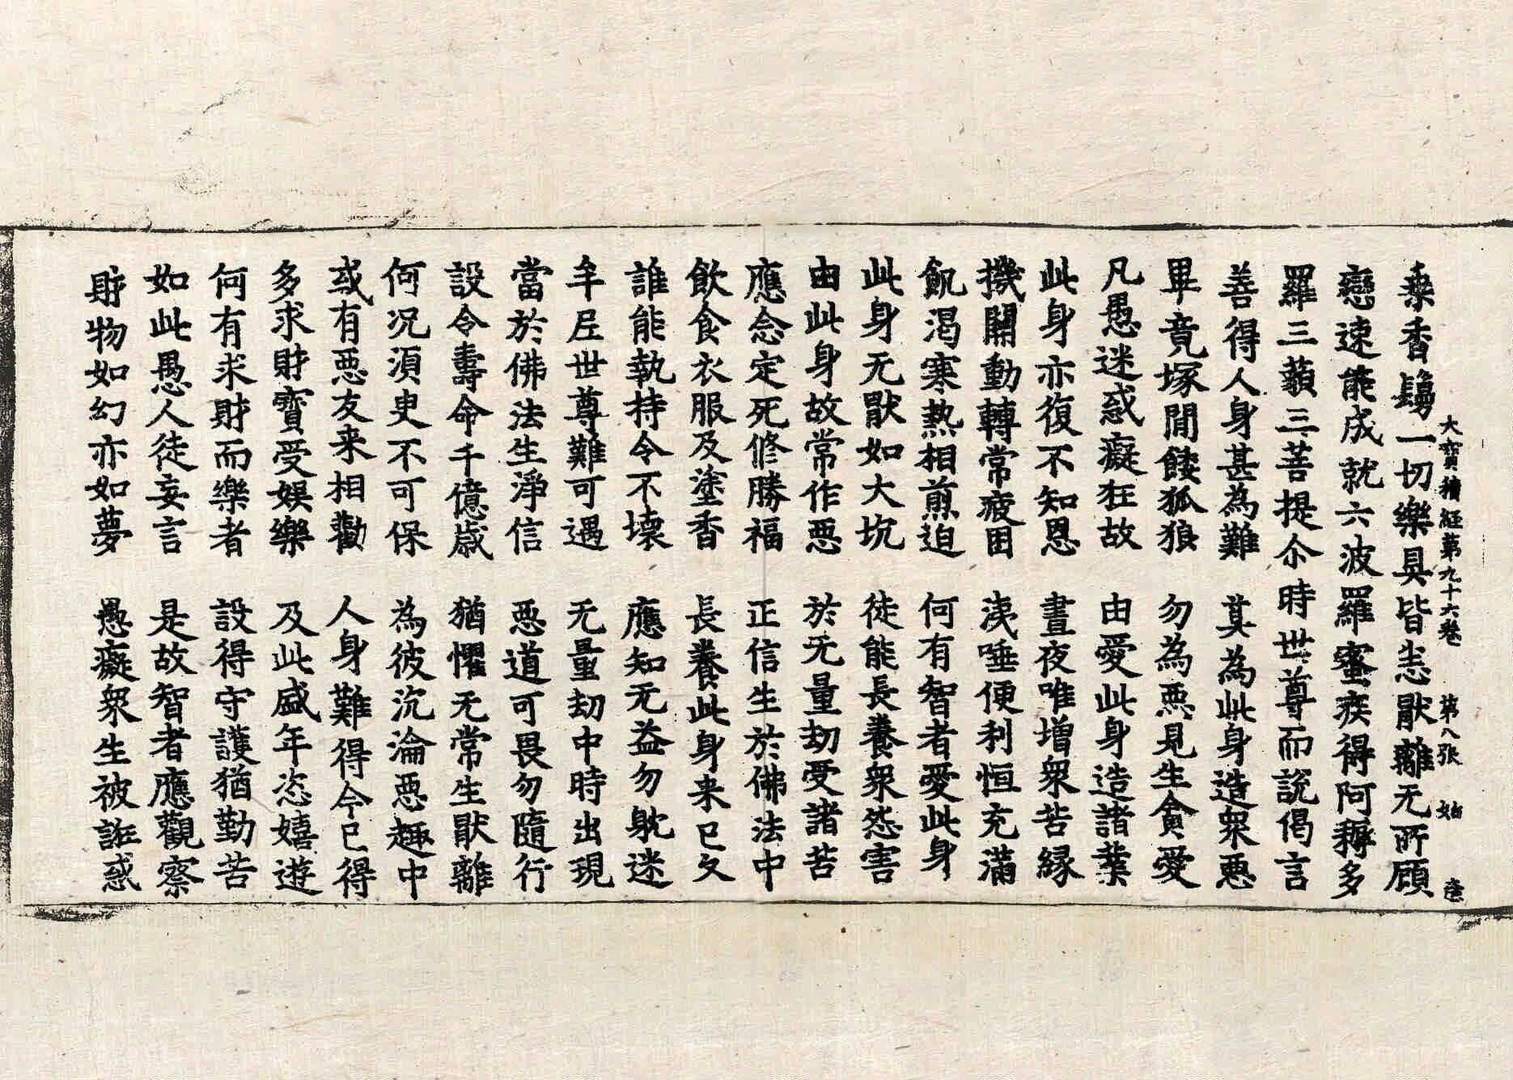 大寳積經第九十六卷 第八張 始
乗香鬘一切樂具皆悉猒離无所顧
戀速能成就六波羅蜜疾得阿耨多
羅三藐三菩提尒時世尊而說偈言
善得人身甚為難 莫為此身造衆惡
畢竟塚間餧狐狼 勿為惡見生貪愛
凡愚迷惑癡狂故 由愛此身造諸業
此身亦復不知恩 晝夜唯增衆苦緣
機關動轉常疲困 洟唾便利恒充滿
飢渴寒熱相煎迫 何有智者愛此身
此身无猒如大坑 徒能長養衆怨害
由此身故常作惡 於无量劫受諸苦
應念定死修勝福 正信生於佛法中
飲食衣服及塗香 長養此身来已久
誰能執持令不壞 應知无益勿躭迷
牟尼世尊難可遇 无量劫中時出現
當於佛法生淨信 惡道可畏勿隨行
設令壽命千億歲 猶懼无常生猒離
何况湏臾不可保 為彼沉淪惡趣中
或有惡友来相勸 人身難得今已得
多求財寳受娛樂 及此盛年恣嬉遊
何有求財而樂者 設得守護猶勤苦
如此愚人徒妄言 是故智者應觀察
財物如幻亦如夢 愚癡衆生被誑惑